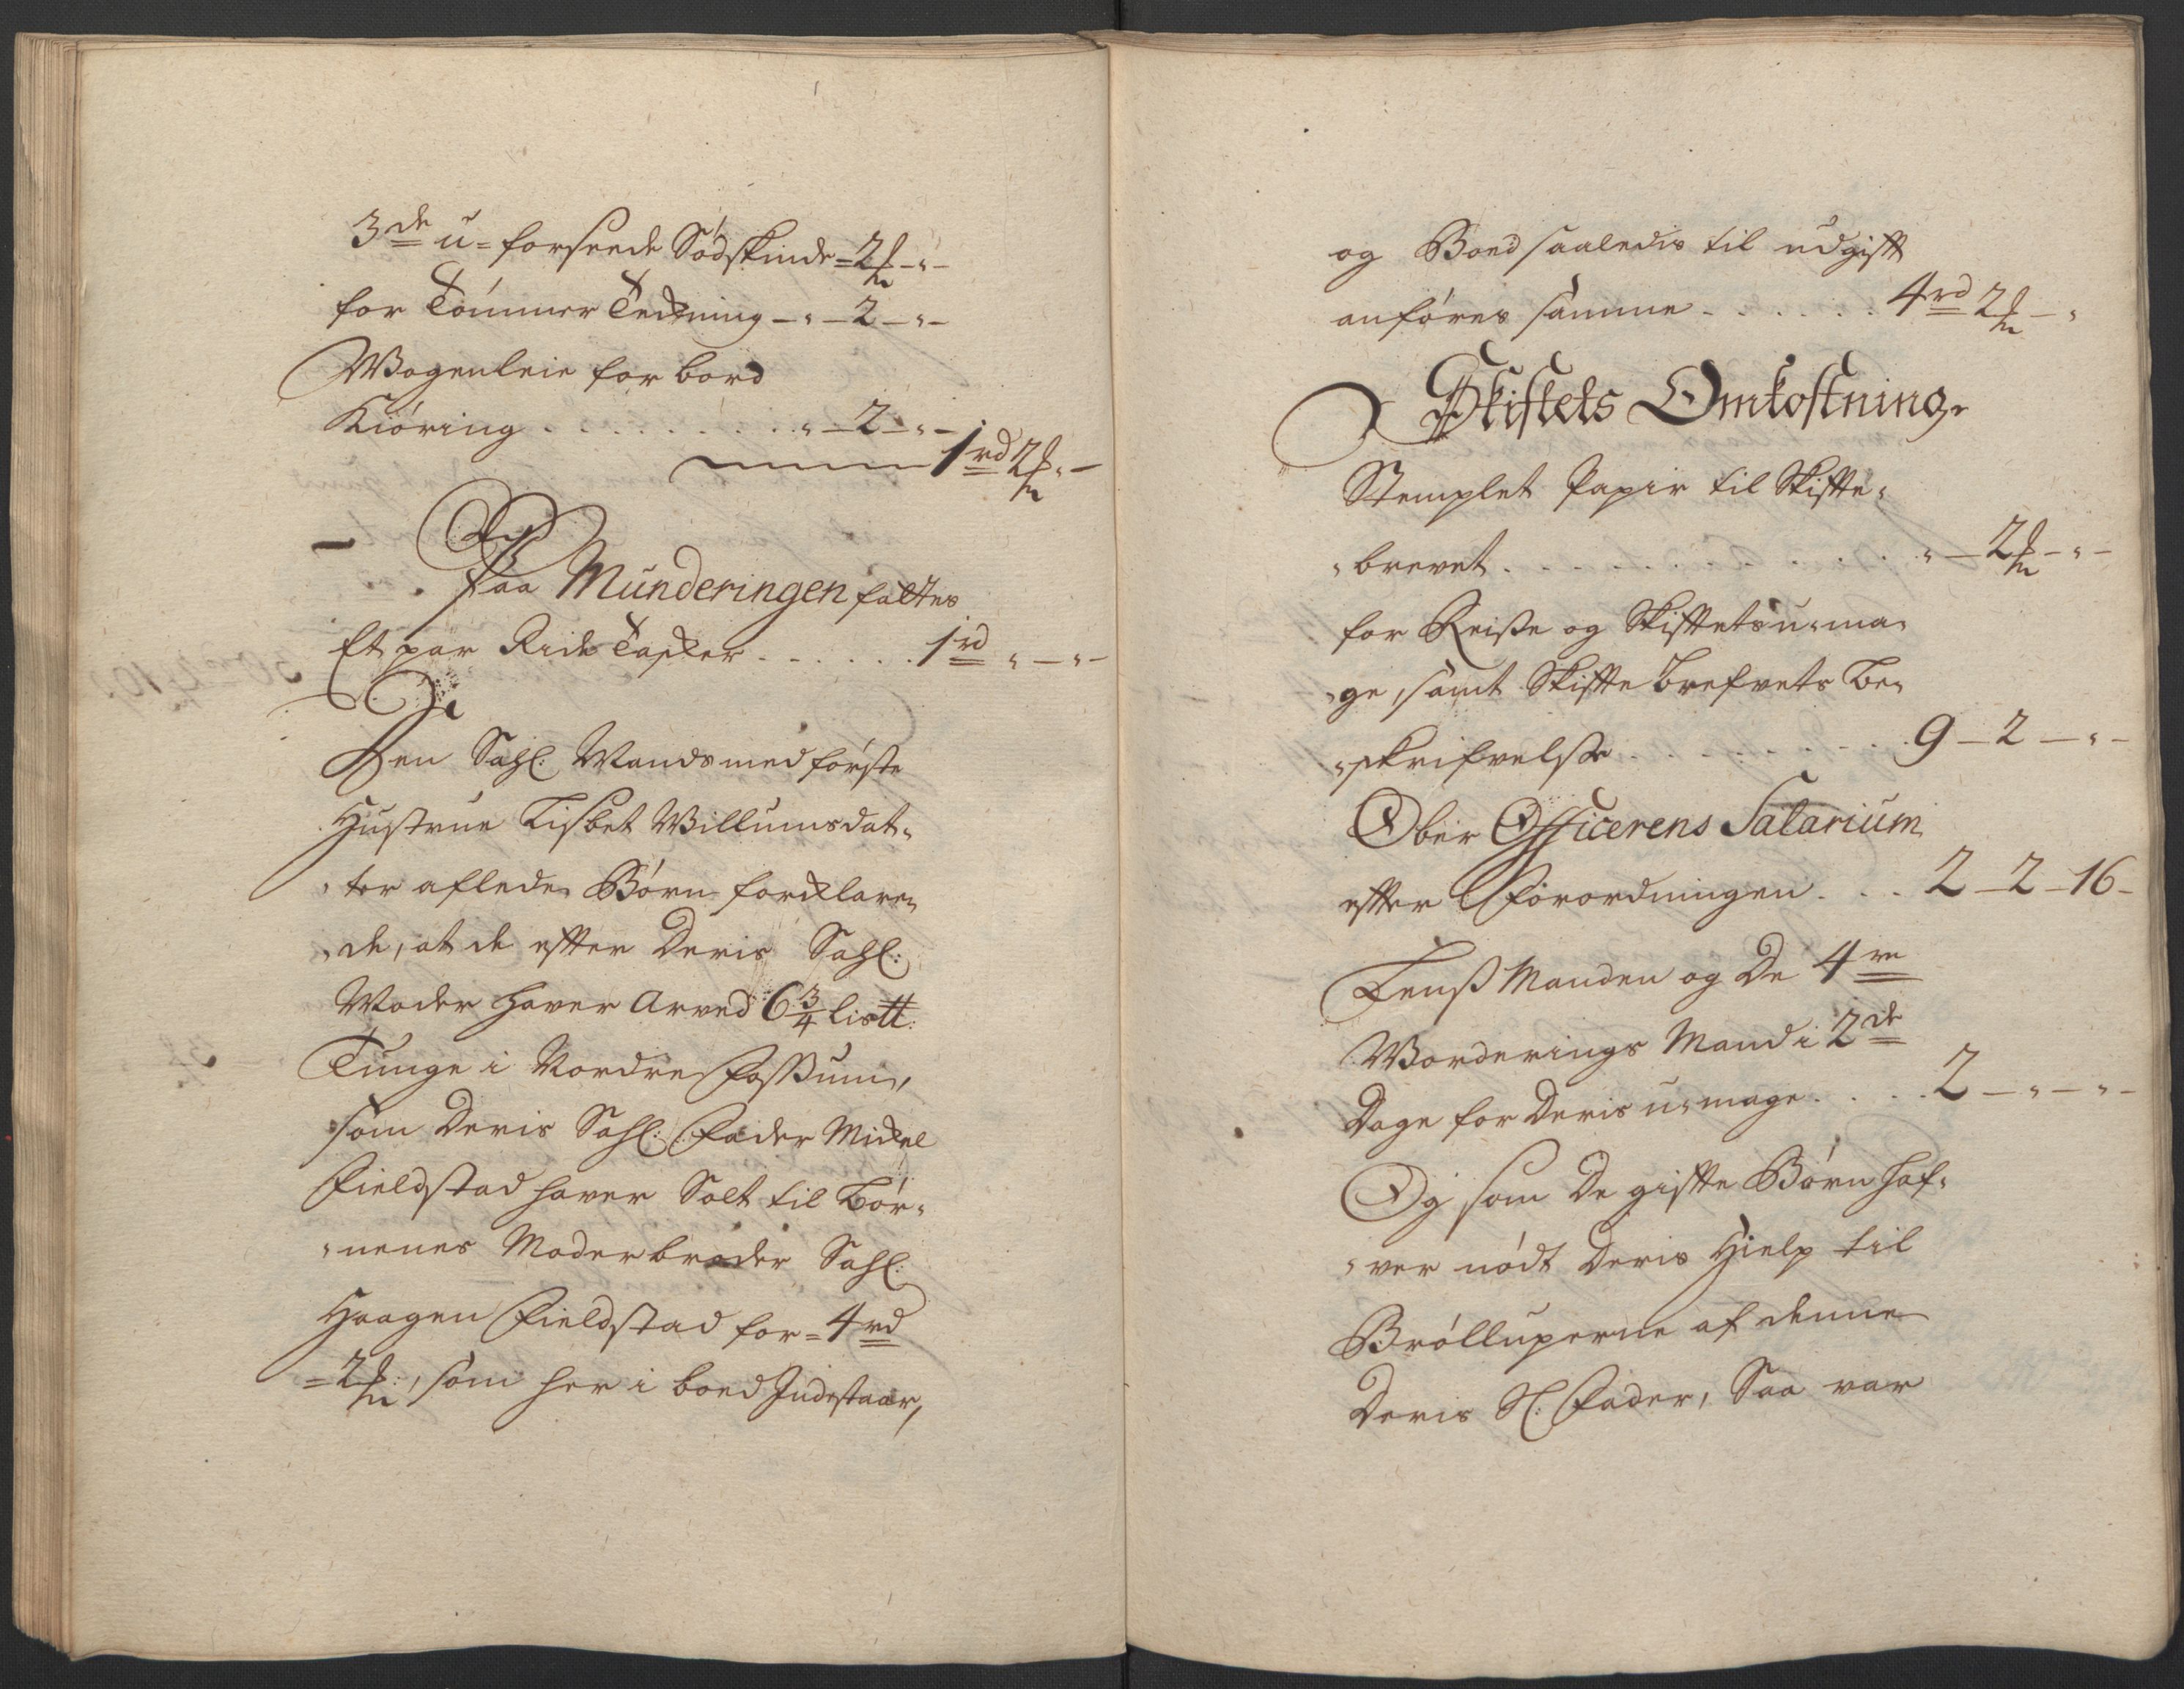 3de u=forseede Södskinde = 2 ß - " -
for Tömmer Teckning - " - 2 - " -
Wogenleie for bord
Kiöring . . . . . . . . . " - 2 - " -
1 rd 2 ß " -
Paa Munderingen faltes
Et par Ride Tasker . . . . . . 1 rd " - " -
Den Sahl: Mands med förste
Hustrue Lisbet Willumsdat„
„ter aflede Börn forklare„
„de, at de efter Deris Sahl:
Moder haver Arved 6 3/4 lis tt:
Tunge i Nordre Fossum,
som Deris Sahl: Fader Mickel
Fieldstad haver Solt til Bör„
„nenes Moderbroder Sahl:
Haagen Fieldstad for = 4 rd
= 2 ß:, som her i boed Indestaar,
og Boed saaledis til udgift
anföres samme . . . . . . 4 rd 2 ß - "
Skiftets Omkostning.
Stemplet Papir til Skifte„
„brevet . . . . . . . . . . " - 2 ß - " -
for Reise og Skiftets u„ma„
„ge, samt Skifte Brefvets Be„
„skrifvelse . . . . . . . . 9 - 2 - " -
Ober Officerens Salarium
efter Forordningen . . . 2 - 2 - 16 -
Lenß Manden og De 4re
Worderings Mænd i 2de
Dage for Deris u„mage . . . . 2 - " - " -
Og som De gifte Börn haf„
„ver nödt Deris Hielp til
Bröllupperne af denne
Deris Sl: Fader, Saa var